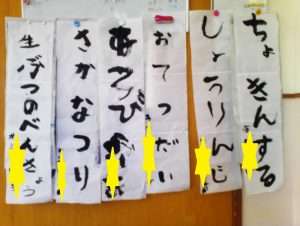 ちょきんする
しょうりんじ
おてつだい
さかなつり
生ぶつのべんきょう